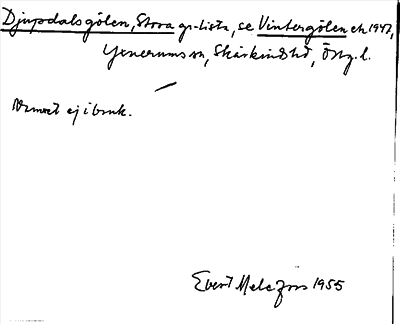 Djupdalsgölen, Stora gr-lista, se Vintergölen ek 1947,
Yxnerums sn, Skärkinds hd, Östg. l.
Namnet ej i bruk.
Evert Melefors 1955